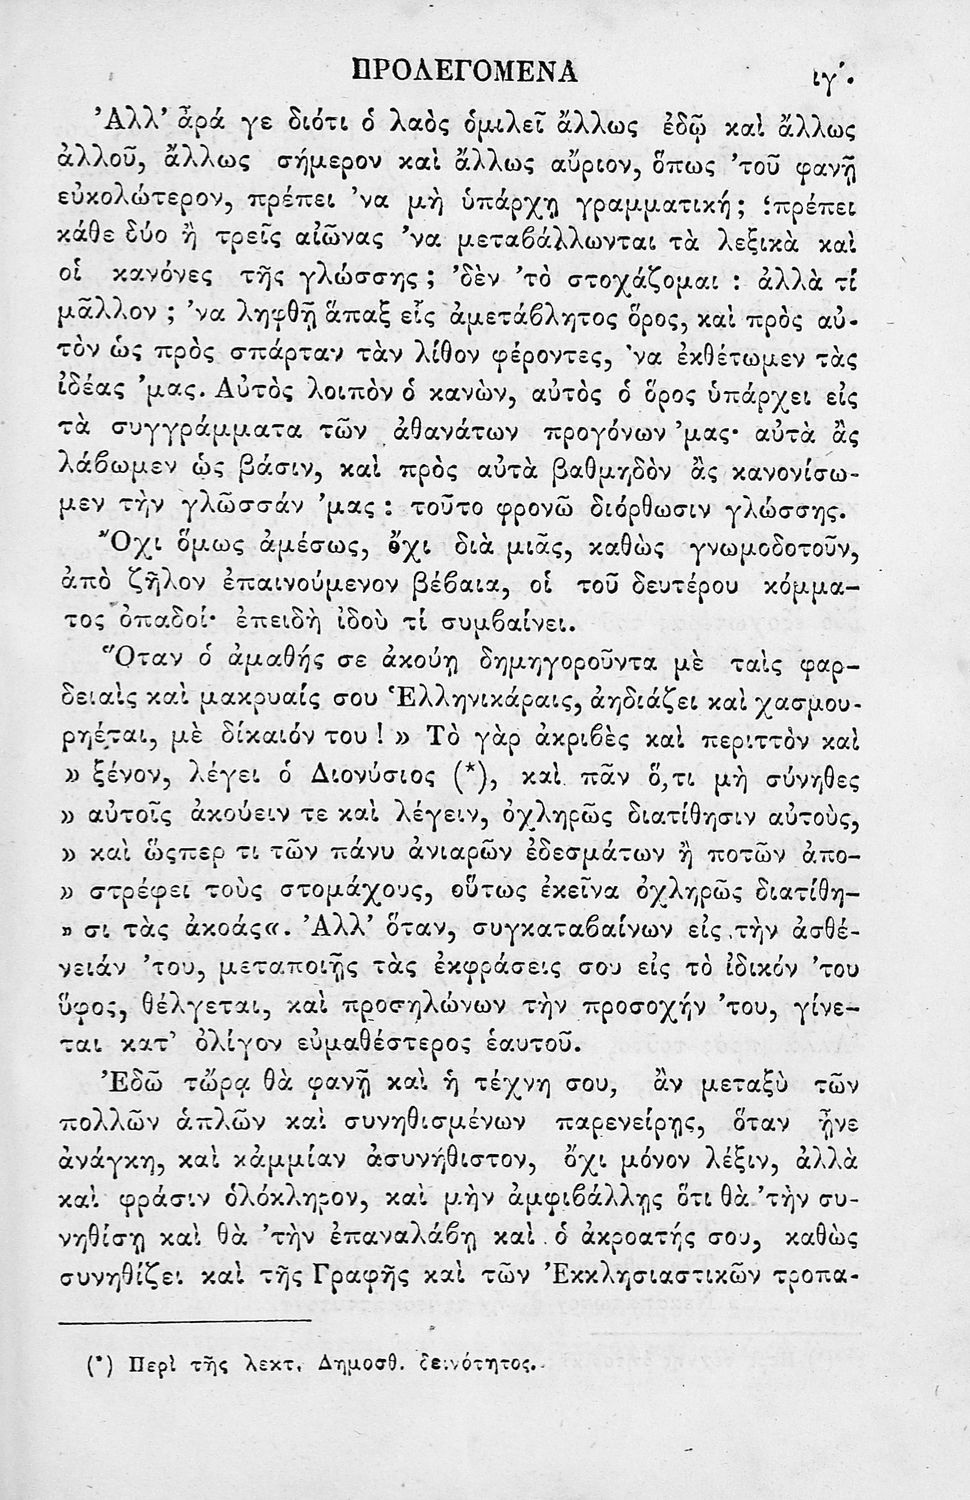 ΠΡΟΛΕΓΟΜΕΝΑ ιγ´.
Ἀλλ' ἆρά γε διότι ὁ λαὸς ὁμιλεῖ ἄλλως ἐδῷ καὶ ἄλλως
ἀλλοῦ, ἄλλως σήμερον καὶ ἄλλως αὔριον, ὅπως 'τοῦ φανῇ
εὐκολώτερον, πρέπει 'να μὴ ὑπάρχῃ γραμματική; πρέπει
κάθε δύο ἢ τρεῖς αἰῶνας 'να μεταβάλλωνται τὰ λεξικὰ καὶ
οἱ κανόνες τῆς γλώσσης; 'δὲν 'τὸ στοχάζομαι : ἀλλὰ τί
μᾶλλον ; 'να ληφθῇ ἅπαξ εἷς ἀμετάβλητος ὅρος, καὶ πρὸς αὐ-
τὸν ὡς πρὸς σπάρταν τὰν λίθον φέροντες, 'να ἐκθέτωμεν τὰς
ἰδέας 'μας. Αὐτὸς λοιπὸν ὁ κανὼν, αὐτὸς ὁ ὅρος ὑπάρχει εἰς
τὰ συγγράμματα τῶν ἀθανάτων προγόνων 'μας· αὐτὰ ἂς
λάβωμεν ὡς βάσιν, καὶ πρὸς αὐτὰ βαθμηδὸν ἂς κανονίσω-
μεν τὴν γλῶσσάν 'μας : τοῦτο φρονῶ διόρθωσιν γλώσσης.
Ὄχι ὅμως ἀμέσως, ὄχι διὰ μιᾶς, καθὼς γνωμοδοτοῦν,
ἀπὸ ζῆλον ἐπαινούμενον βέβαια, οἱ τοῦ δευτέρου κόμμα-
τος ὀπαδοί· ἐπειδὴ ἰδοὺ τί συμβαίνει.
Ὅταν ὁ ἀμαθὴς σε ἀκούῃ δημηγοροῦντα μὲ ταὶς φαρ-
δειαὶς καὶ μακρυαίς σου Ἑλληνικάραις, ἀηδιάζει καὶ χασμου-
ρηέται, μὲ δίκαιόν του ! » Τὸ γὰρ ἀκριβὲς καὶ περιττὸν καὶ
» ξένον, λέγει ὁ Διονύσιος (*), καὶ πᾶν ὅ,τι μὴ σύνηθες
» αὐτοῖς ἀκούειν τε καὶ λέγειν, ὀχληρῶς διατίθησιν αὐτοὺς,
» καὶ ὥςπερ τι τῶν πάνυ ἀνιαρῶν ἐδεσμάτων ἢ ποτῶν ἀπο-
» στρέφει τοὺς στομάχους, οὕτως ἐκεῖνα ὀχληρῶς διατίθη-
» σι τὰς ἀκοάς«. Ἀλλ' ὅταν, συγκαταβαίνων εἰς τὴν ἀσθέ-
νειάν 'του, μεταποιῇς τὰς ἐκφράσεις σου εἰς τὸ ἰδικόν 'του
ὕφος, θέλγεται, καὶ προσηλώνων τὴν προσοχήν 'του, γίνε-
ται κατ' ὀλίγον εὐμαθέστερος ἑαυτοῦ.
Ἐδῶ τώρᾳ θὰ φανῇ καὶ ἡ τέχνη σου, ἂν μεταξὺ τῶν
πολλῶν ἁπλῶν καὶ συνηθισμένων παρενείρῃς, ὅταν ᾖνε
ἀνάγκη, καὶ κἀμμίαν ἀσυνήθιστον, ὄχι μόνον λέξιν, ἀλλὰ
καὶ φράσιν ὁλόκληρον, καὶ μὴν ἀμφιβάλλῃς ὅτι θὰ 'τὴν συ-
νηθίσῃ καὶ θὰ 'τὴν ἐπαναλάβῃ καὶ ὁ ἀκροατής σου, καθὼς
συνηθίζει καὶ τῆς Γραφῆς καὶ τῶν Ἐκκλησιαστικῶν τροπα-
(*) Περὶ τῆς λεκτ. Δημοσθ. δεινότητος.